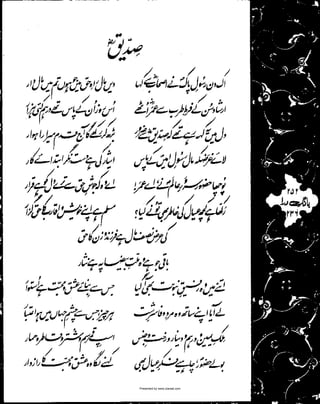 صدیقؓ
اک دن رسولِ پاکؐ نے اصحابؓ سے کہا دیں مال راہِ حق میں جو ہوں تم میں مالدار
ارشاد سن کے فرطِ طرب سے عمرؓ اٹھے اس روز ان کے پاس تھے درہم کئی ہزار
دل میں یہ کہہ رہے تھے کہ صدیقؓ سے ضرور بڑھ کر رکھے گا آج قدم میرا راہوار
لائے غرضکہ مال رسولِ امیںؐ کے پاس ایثار کی ہے دست نگر ابتدائے کار
پوچھا حضور سرورِ عالمؐ نے، اے عمرؓ! اے وہ کہ جوشِ حق سے ترے دل کو ہے قرار
رکھا ہے کچھ عیال کی خاطر بھی تو نے کیا؟ مسلم ہے اپنے خویش و اقارب کا حق گزار
کی عرض نصف مال ہے فرزند و زن کا حق
باقی جو ہے وہ ملتِ بیضا پہ ہے نثار
اتنے میں وہ رفیقِ نبوت بھی آ گیا جس سے بنائے عشق و محبت ہے استوار
لے آیا اپنے ساتھ وہ مردِ وفا سرشت ہر چیز، جس سے چشمِ جہاں میں ہو اعتبار
ملکِ یمین و درہم و دینار و رخت و جنس اسپِ قمر سم و شتر و قاطر و حمار
بولے حضورؐ، چاہیے فکرِ عیال بھی کہنے لگا وہ عشق و محبت کا راز دار
۲۵۲
بانگِ درا
۲۳۶
Presented by www.ziaraat.com